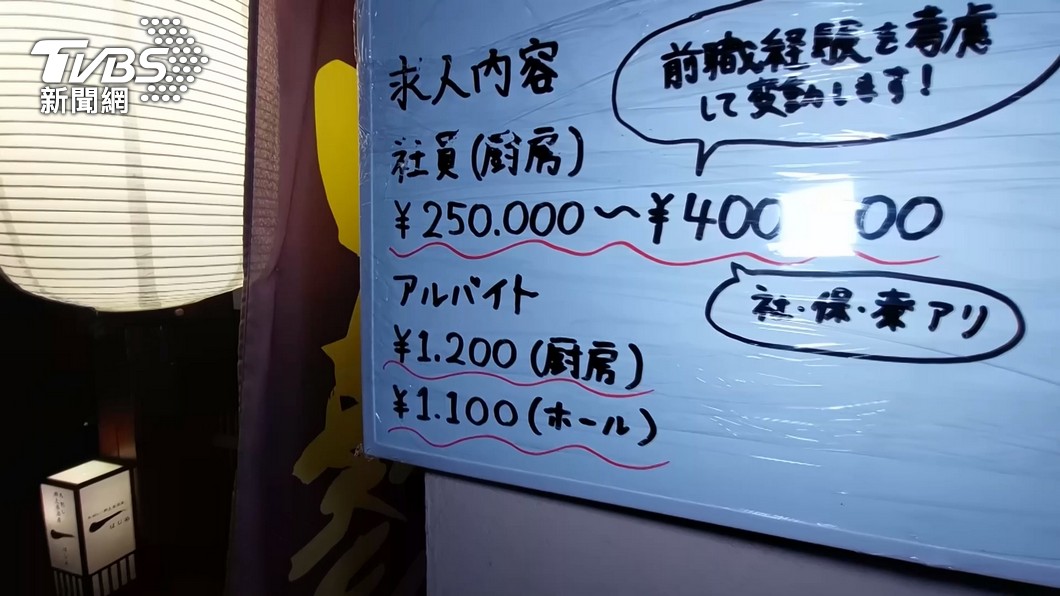 TVBS
新聞網
求人内容
前職経験を考慮
して変動します!
社員(厨房)
¥250.000~¥400 00
社・保・業アリ
アルバイト
¥1.200(厨房)
¥1.100(ホール)
はじめ